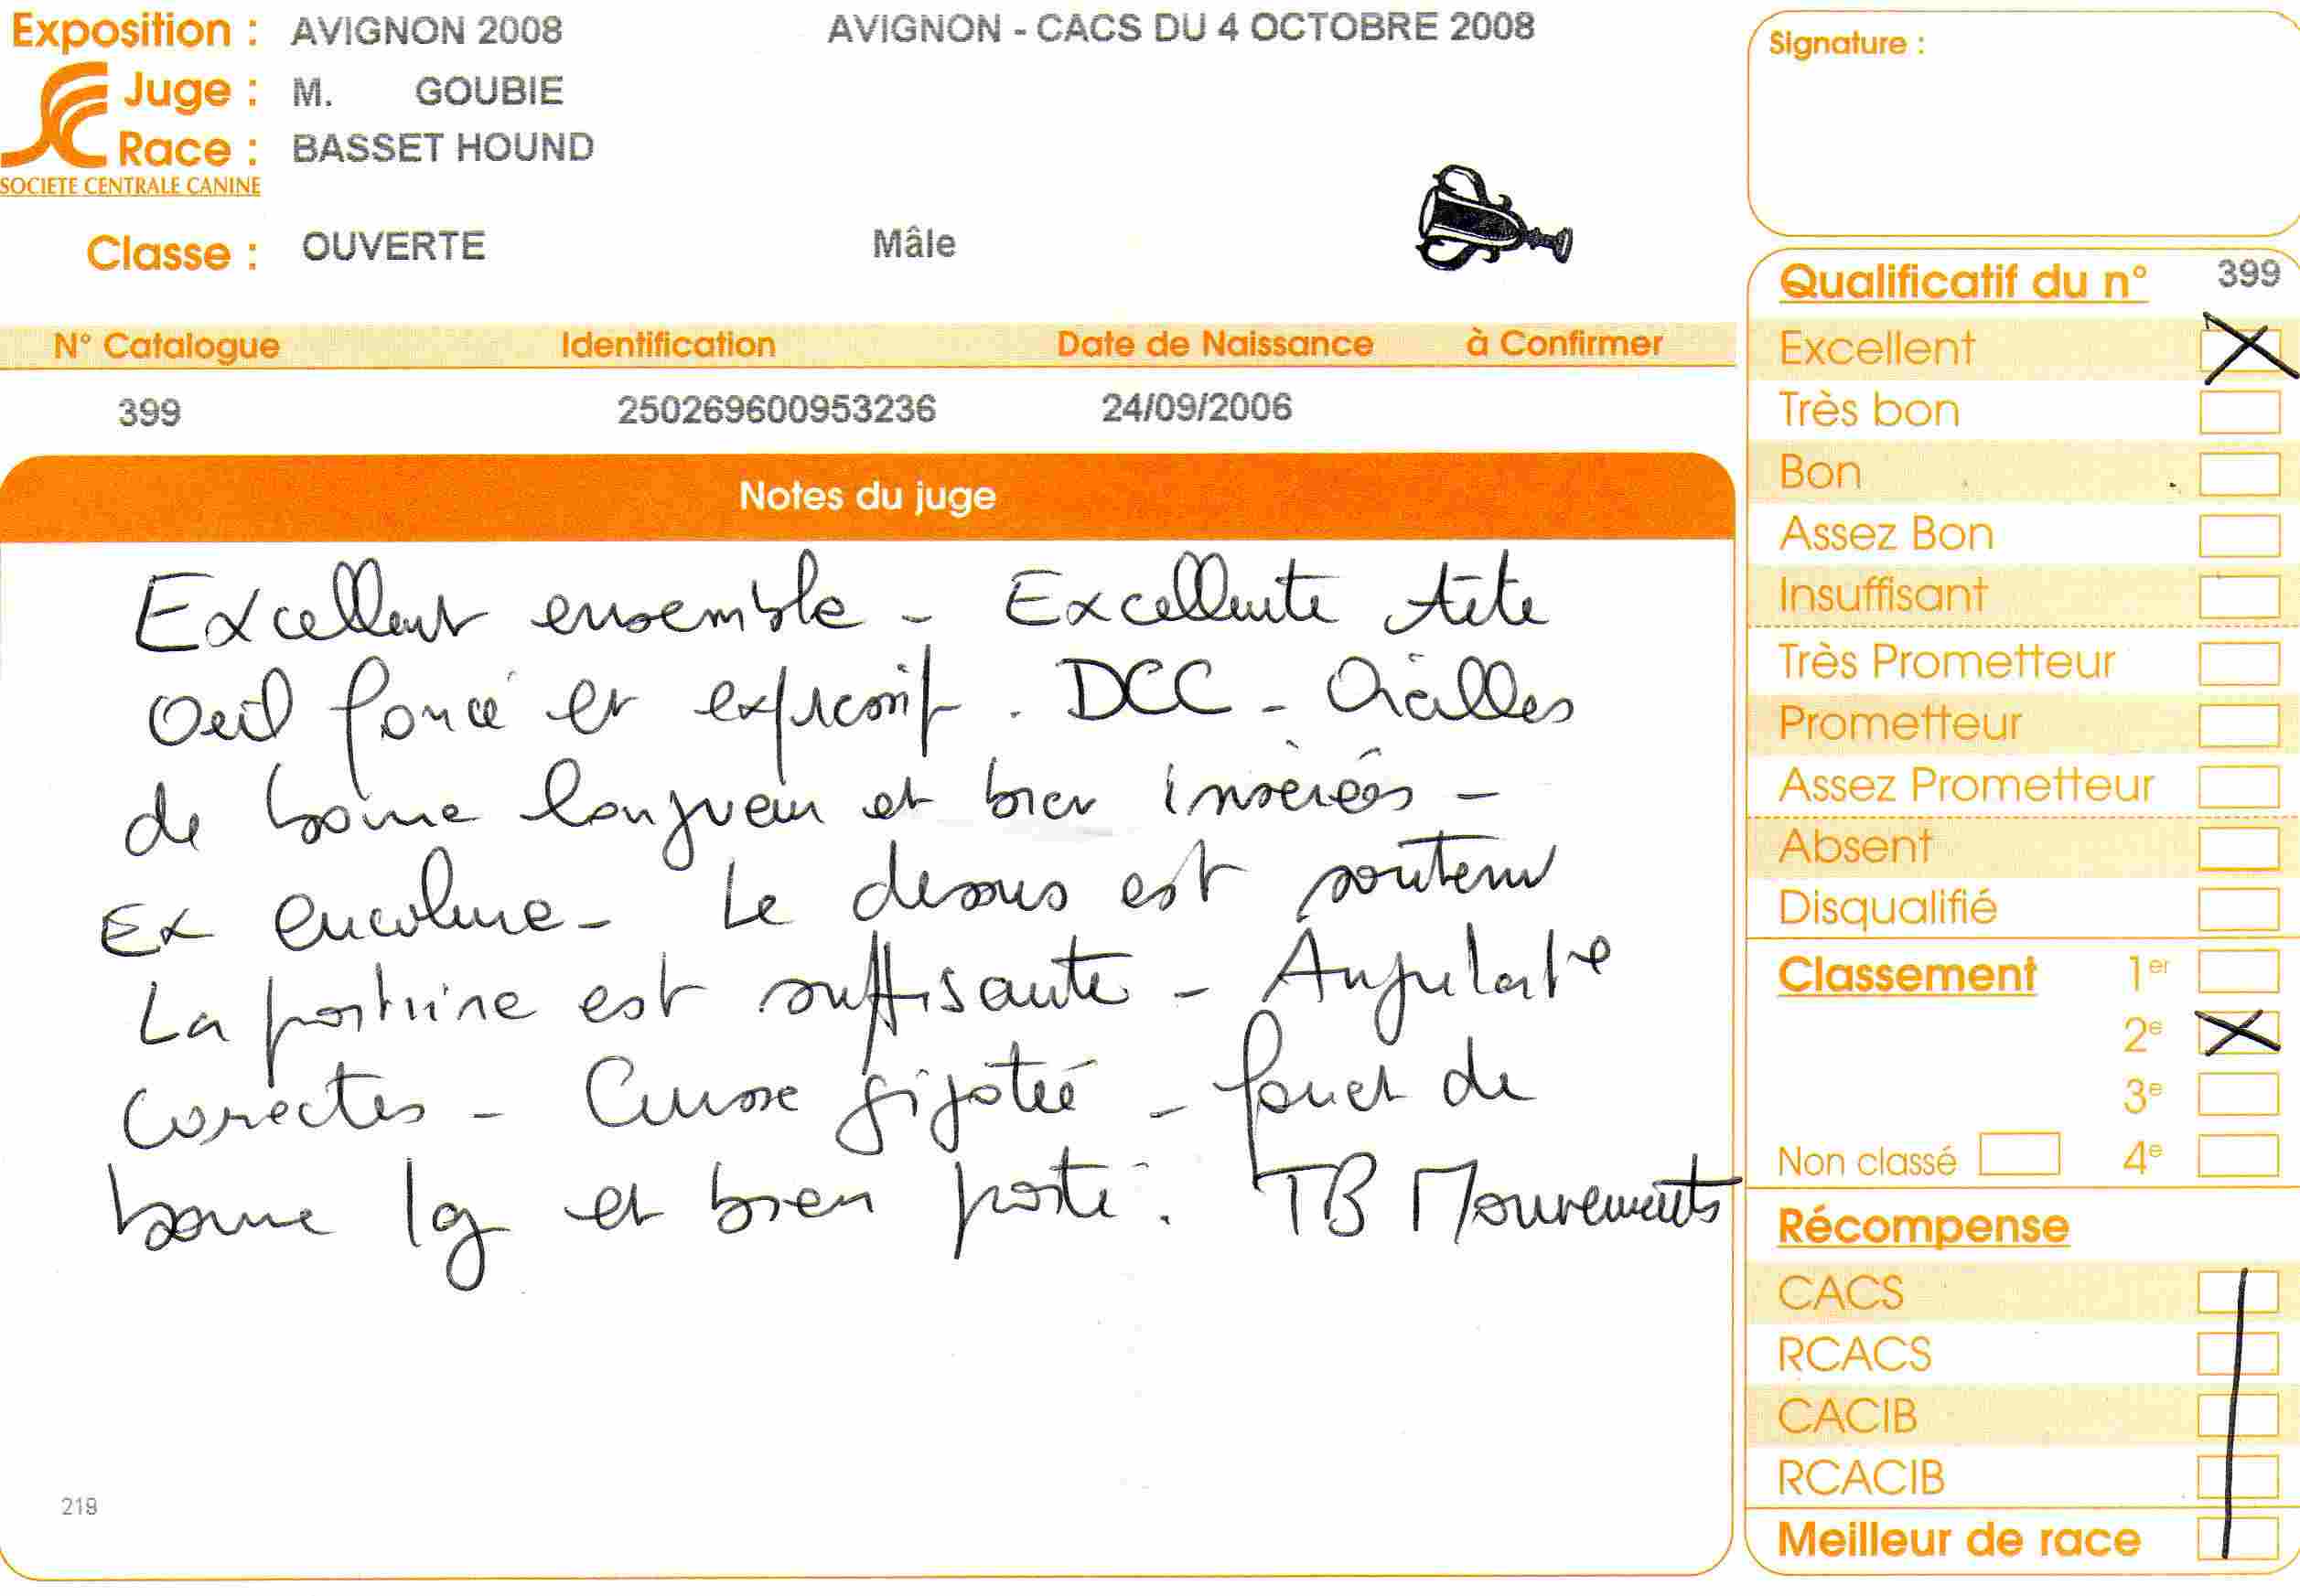 Exposition : AVIGNON 2008 AVIGNON - CACS DU 4 OCTOBRE 2008
Juge : M. GOUBIE
Race : BASSET HOUND
SOCIETE CENTRALE CANINE
Classe : OUVERTE Mâle
N° Catalogue Identification Date de Naissance à Confirmer
399 250269600953236 24/09/2006
Notes du juge
Excellent ensemble - Excellente tête
Oeil foncé et expressif. DCC - Oreilles
de bonne longueur et bien insérées -
Ex encolure - Le dessus est soutenu
La poitrine est suffisante - Angulat°
correctes - Cuisse gigotée - fouet de
bonne lg et bien porté. TB Mouvements
219
Signature :
Qualificatif du n° 399
Excellent X
Très bon
Bon
Assez Bon
Insuffisant
Très Prometteur
Prometteur
Assez Prometteur
Absent
Disqualifié
Classement 1er
2e X
3e
Non classé 4e
Récompense
CACS
RCACS
CACIB
RCACIB
Meilleur de race